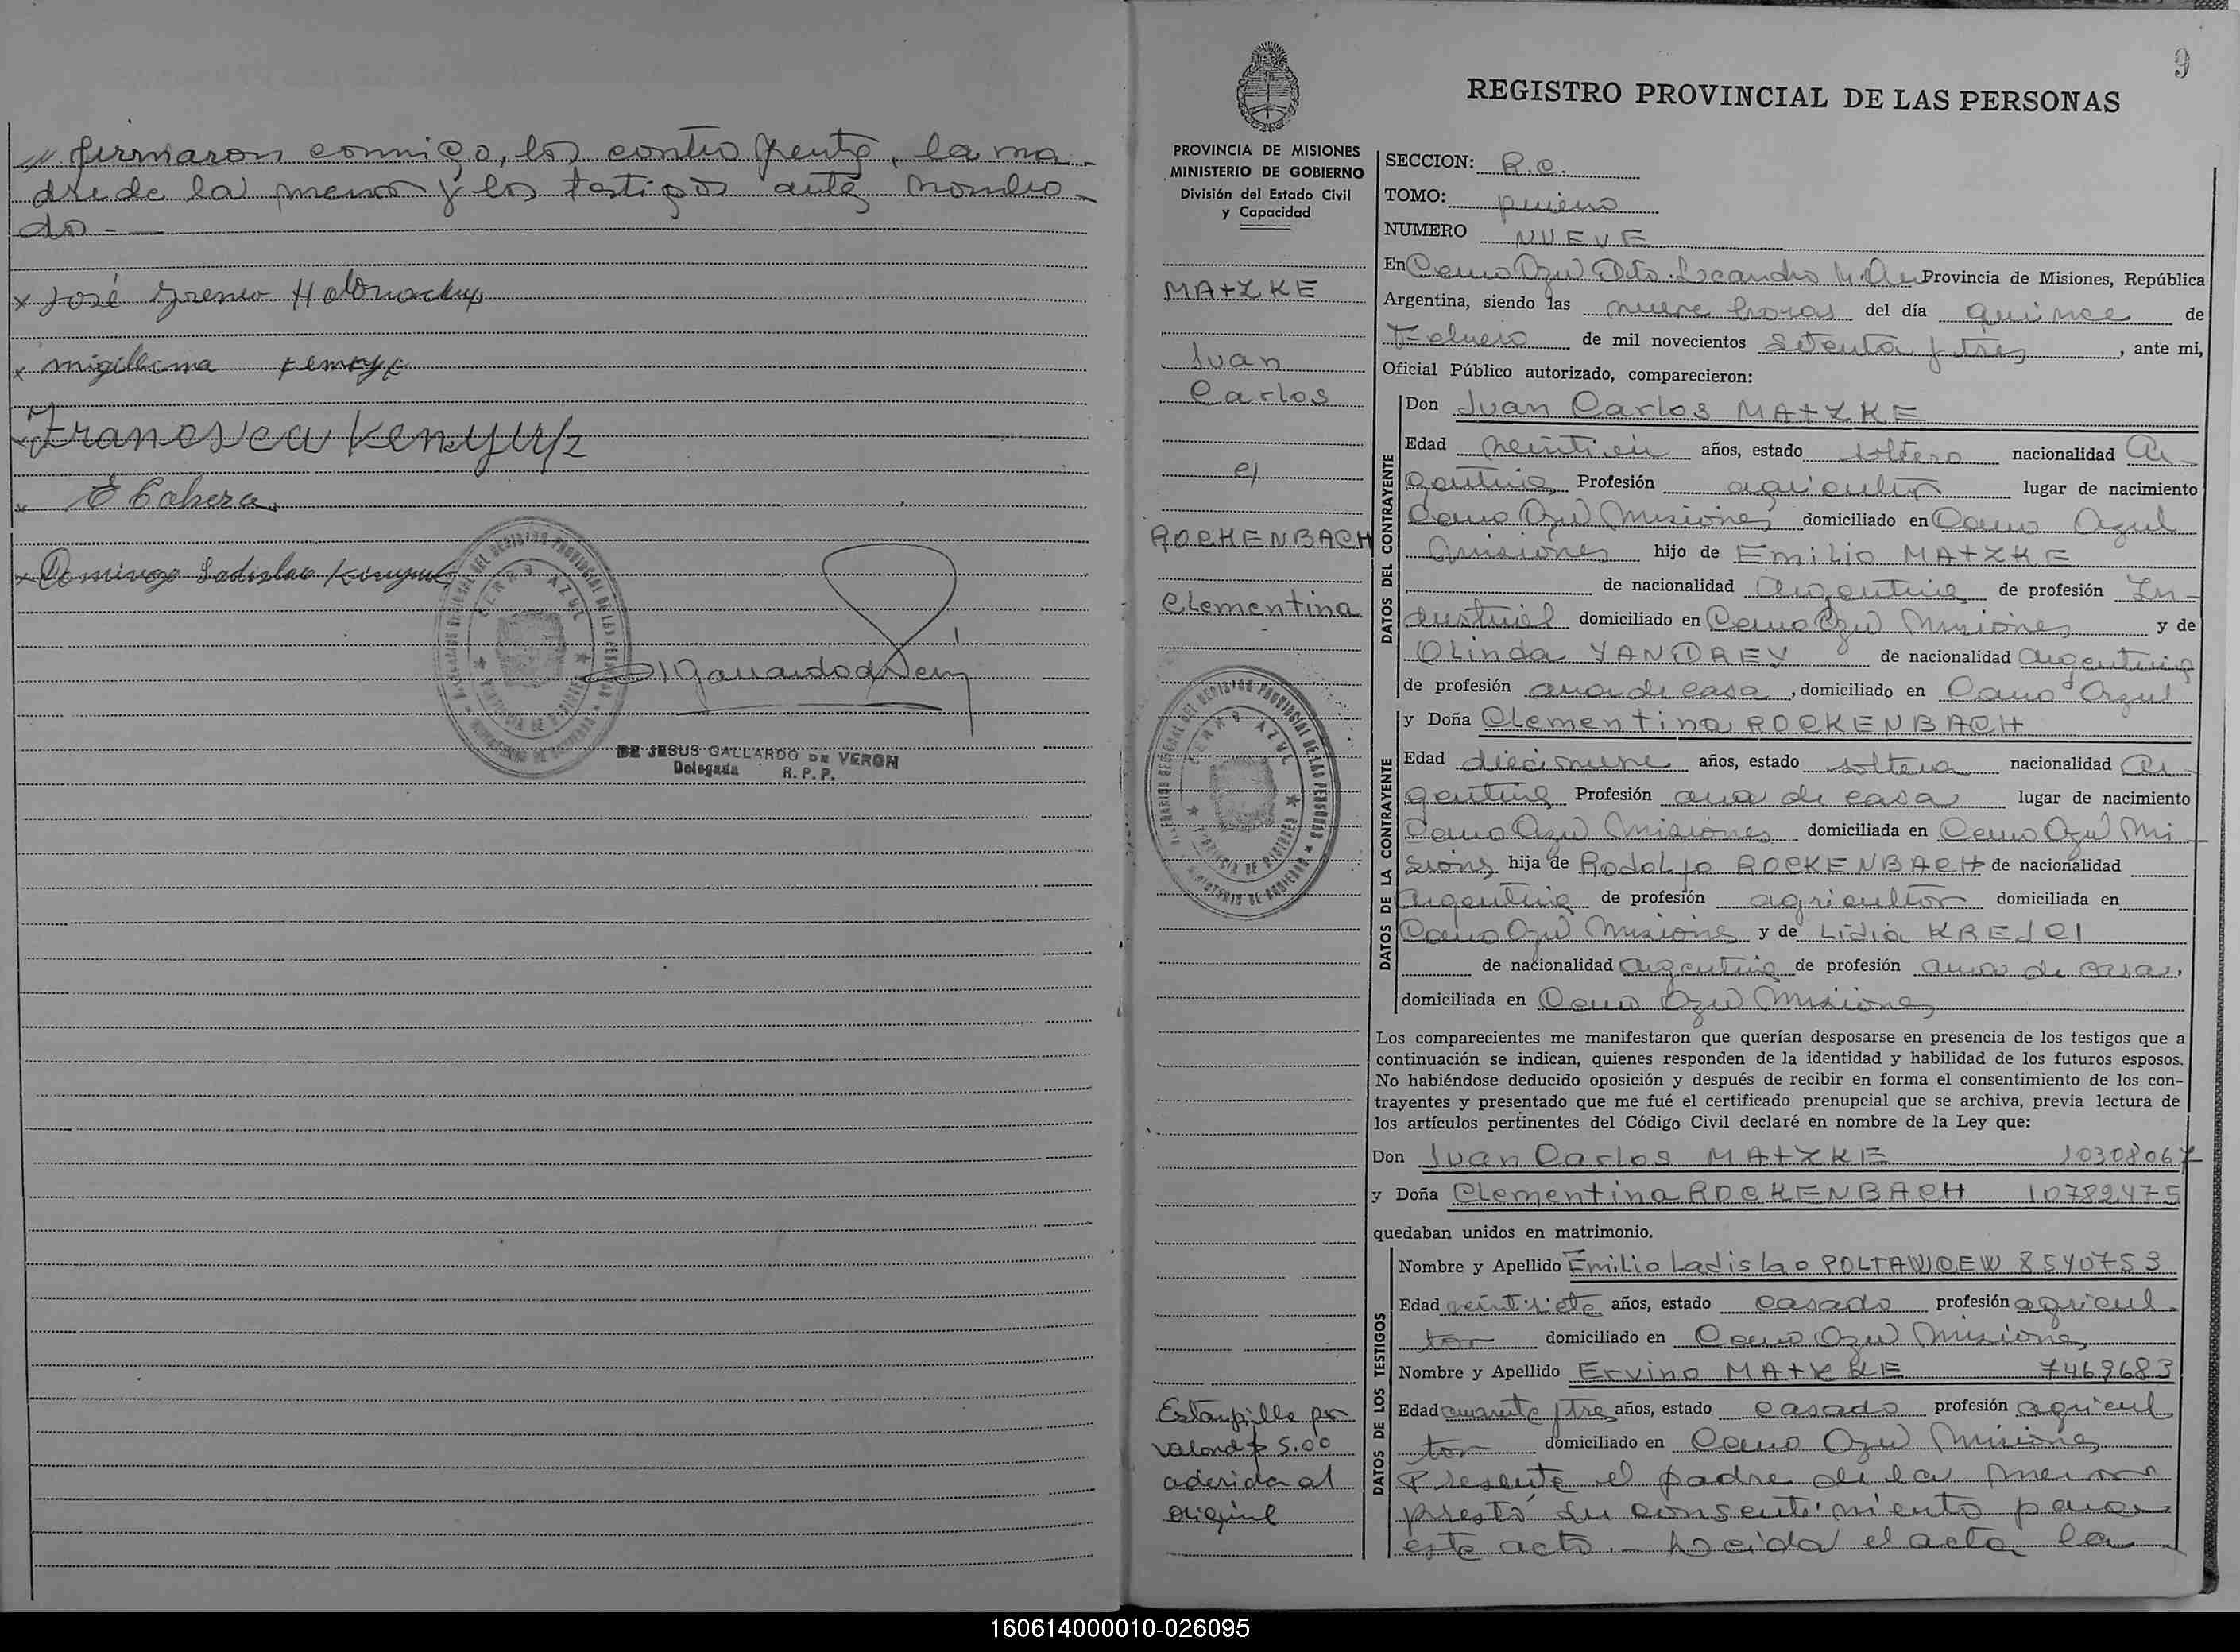 firmaron conmigo, los contrayentes, la ma-
dre de la menor y los testigos antes nombra-
dos.-
x José Ireneo
x migelina
Francisca
x E Cabera
x Domingo Ladislao
CERRO AZUL
DE JESUS GALLARDO DE VERON
Delegada R. P. P.
9
REGISTRO PROVINCIAL DE LAS PERSONAS
PROVINCIA DE MISIONES
MINISTERIO DE GOBIERNO
División del Estado Civil
y Capacidad
MATZKE
Juan
Carlos
c/
ROCKENBACH
Clementina
CERRO AZUL
Estampilla por
valor de $ 5.00
aderida al
original
SECCION: R.C.
TOMO: primero
NUMERO NUEVE
En Cerro Azul Dto. Leandro N. Alem Provincia de Misiones, República
Argentina, siendo las nueve horas del día quince de
Febrero de mil novecientos setenta y tres, ante mi,
Oficial Público autorizado, comparecieron:
DATOS DEL CONTRAYENTE
Don Juan Carlos MATZKE
Edad años, estado soltero nacionalidad Ar-
gentina Profesión agricultor lugar de nacimiento
Cerro Azul Misiones domiciliado en Cerro Azul
Misiones hijo de Emilio MATZKE
de nacionalidad argentina de profesión In-
dustrial domiciliado en Cerro Azul Misiones y de
Olinda YANDREY de nacionalidad argentina
de profesión ama de casa, domiciliado en Cerro Azul
DATOS DE LA CONTRAYENTE
y Doña Clementina ROCKENBACH
Edad diecinueve años, estado soltera nacionalidad Ar-
gentina Profesión ama de casa lugar de nacimiento
Cerro Azul Misiones domiciliada en Cerro Azul Mi
siones hija de Rodolfo ROCKENBACH de nacionalidad
argentina de profesión agricultor domiciliada en
Cerro Azul Misiones y de Lidia KREJCI
de nacionalidad argentina de profesión ama de casa,
domiciliada en Cerro Azul Misiones
Los comparecientes me manifestaron que querían desposarse en presencia de los testigos que a
continuación se indican, quienes responden de la identidad y habilidad de los futuros esposos.
No habiéndose deducido oposición y después de recibir en forma el consentimiento de los con-
trayentes y presentado que me fué el certificado prenupcial que se archiva, previa lectura de
los artículos pertinentes del Código Civil declaré en nombre de la Ley que:
Don Juan Carlos MATZKE 10308067
y Doña Clementina ROCKENBACH 10782475
quedaban unidos en matrimonio.
DATOS DE LOS TESTIGOS
Nombre y Apellido Emilio Ladislao POLTAWCEW 8540753
Edad veintisiete años, estado casado profesión agricul
tor domiciliado en Cerro Azul Misiones
Nombre y Apellido Ervino MATZKE 7469683
Edad cuarenta y tres años, estado casado profesión agricul
tor domiciliado en Cerro Azul Misiones
Presente el padre de la menor
prestó su consentimiento para
este acto.- Leida el acta la
160614000010-026095